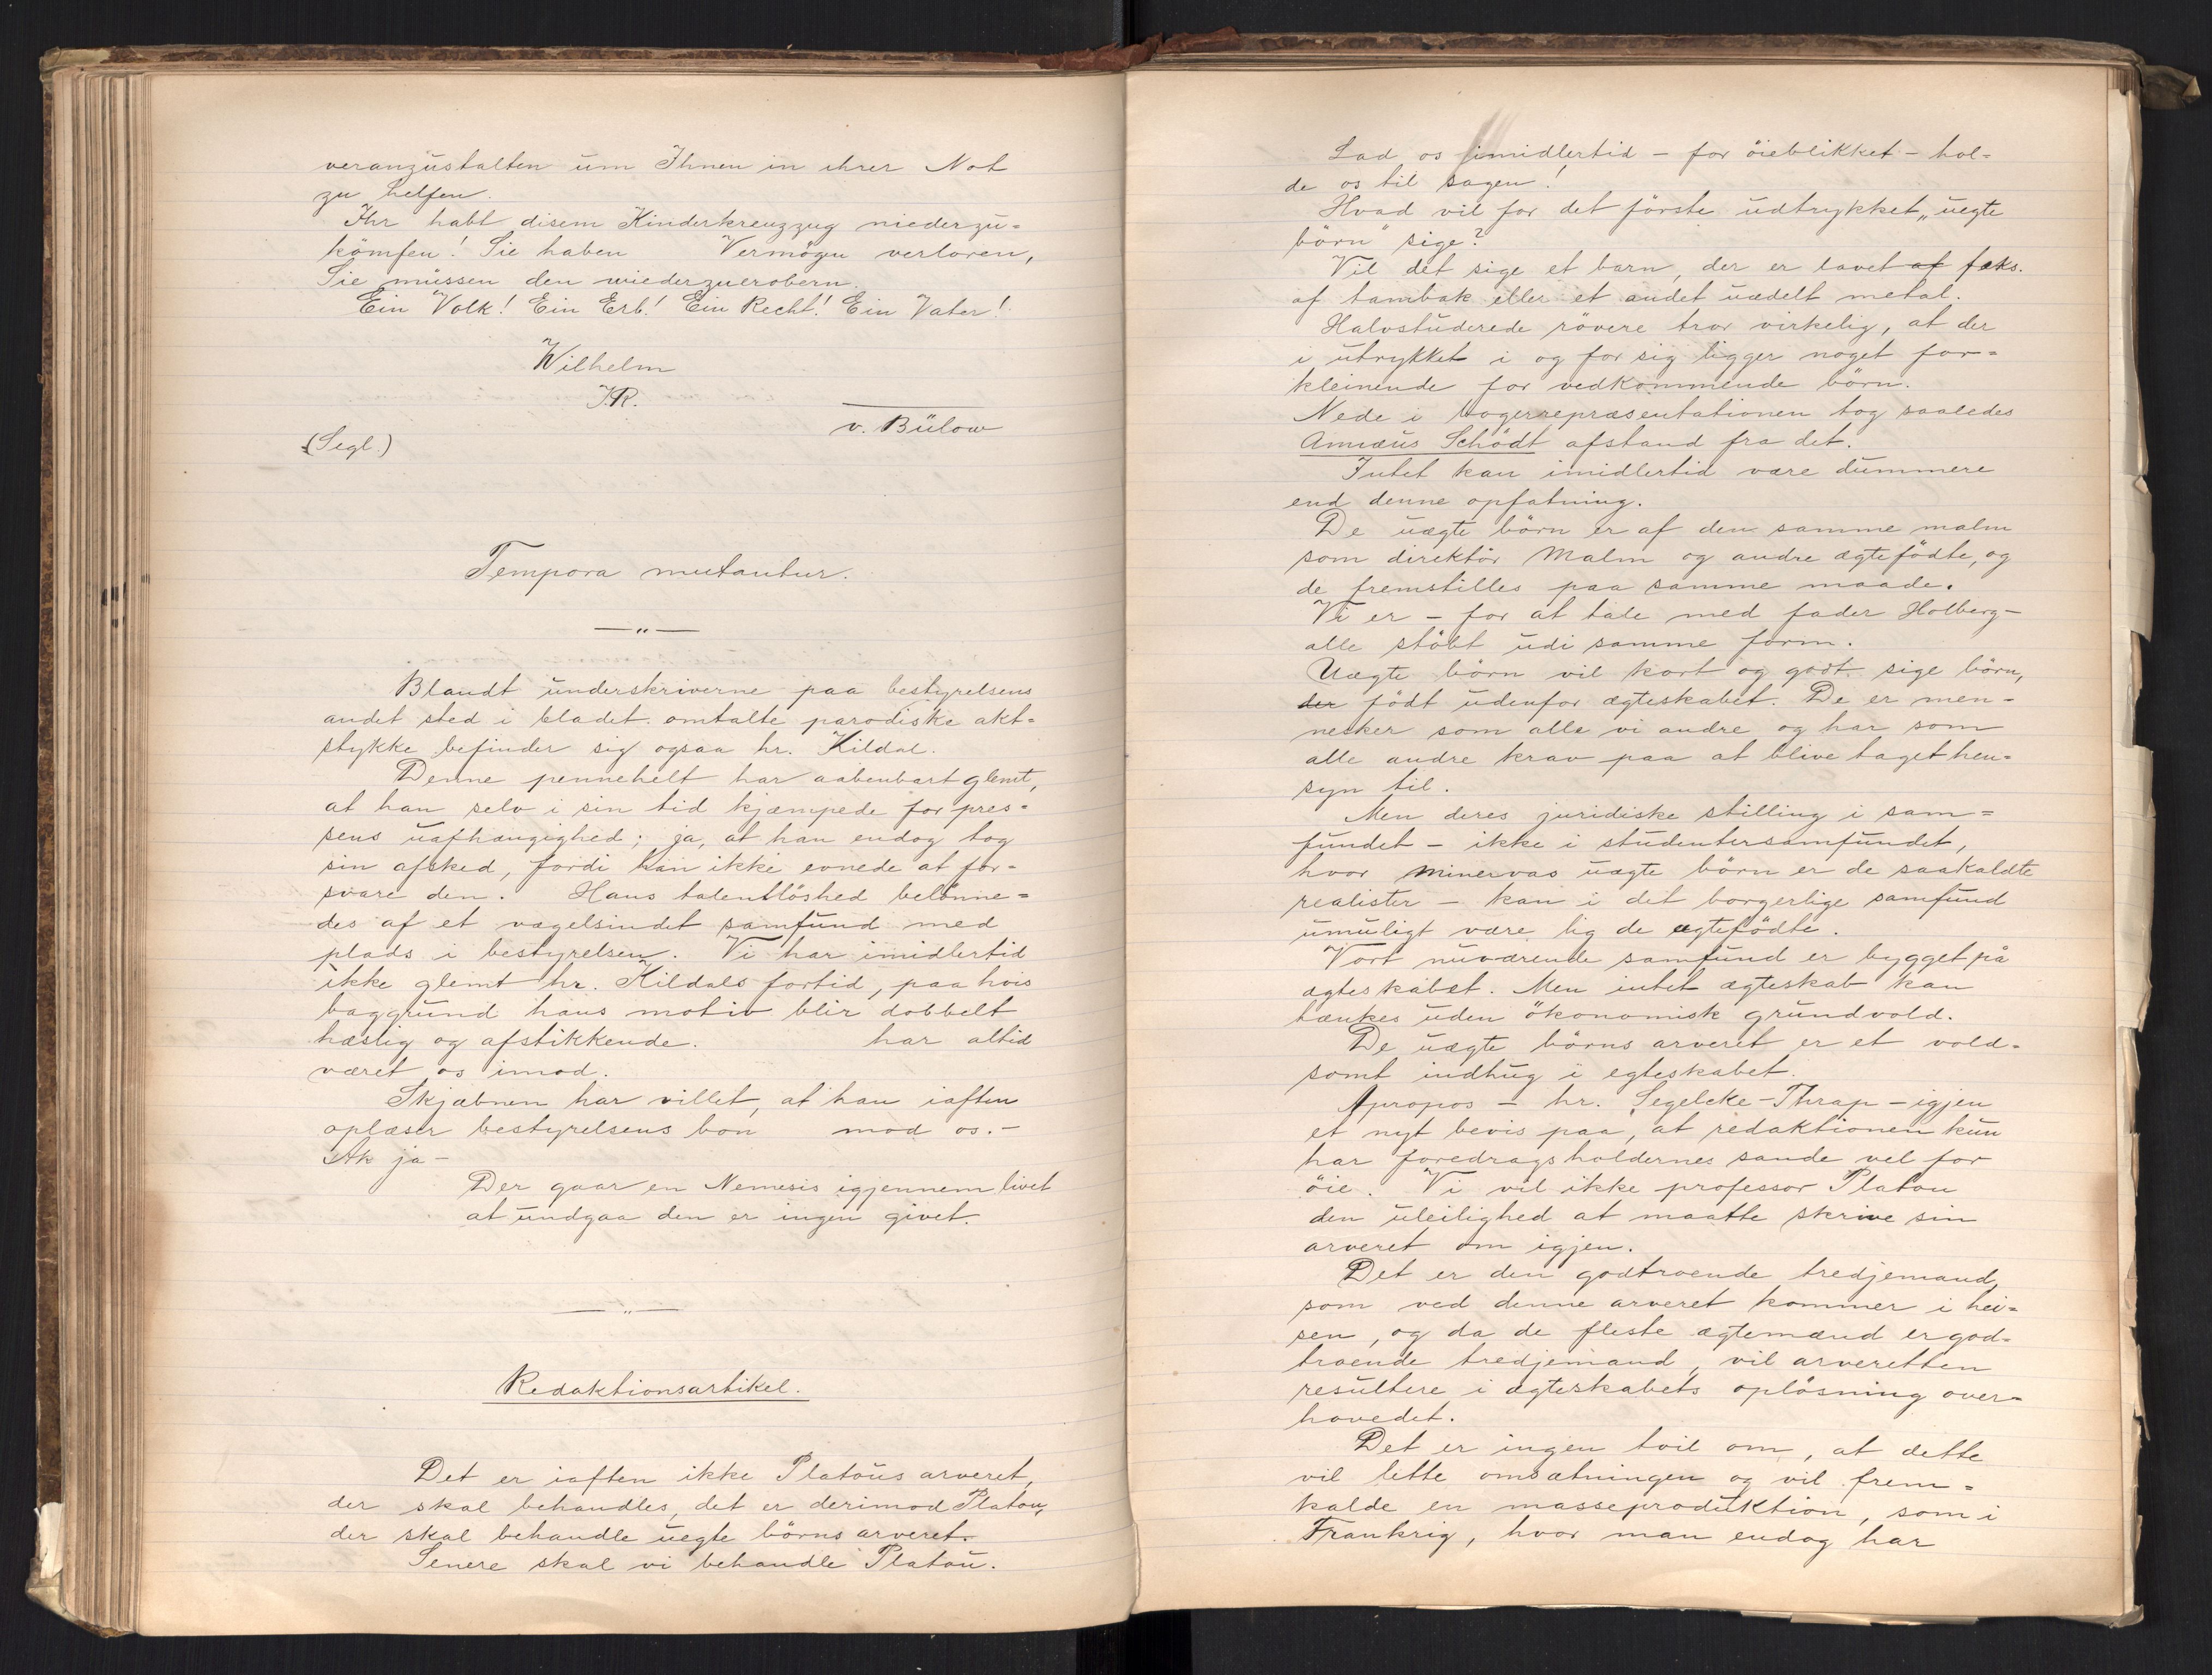 veranzustalten um Ihnen in ihrer Not
zu helfen.
Ihr habt disem Kinderkreuzzug niederzu=
kömfen! Sie haben Vermögen verloren,
Sie müssen den wiederzuerobern.
Ein Volk! Ein Erb! Ein Recht! Ein Vater!
Wilhelm
I.R.
v. Bülow
(Segl.)
Tempora mutantur.
Blandt underskriverne paa bestyrelsens
andet sted i bladet omtalte parodiske akt=
stykke befinder sig ogsaa hr. Kildal.
Denne pennehelt har aabenbart glemt,
at han selv i sin tid kjæmpede for pres=
sens uafhængighed; ja, at han endog tog
sin afsked, fordi han ikke evnede at for=
svare den. Hans talentløshed belønne=
des af et vægelsindet samfund med
plads i bestyrelsen. Vi har imidlertid
ikke glemt hr. Kildals fortid, paa hvis
baggrund hans motiv blir dobbelt
hæslig og afstikkende. har altid
været os imod.
Skjæbnen har villet, at han iaften
oplæser bestyrelsens bon mod os. -
Ak ja -
Der gaar en Nemesis igjennem livet
at undgaa den er ingen givet.
Redaktionsartikel.
Det er iaften ikke Platous arveret,
der skal behandles, det er derimod Platou,
der skal behandle uegte börns arveret.
Senere skal vi behandle Platou.
Lad os imidlertid - for öieblikket - hol=
de os til sagen!
Hvad vil for det förste udtrykket „uegte
börn" sige?
Vil det sige et barn, der er lavet af f.eks.
af tambak eller et andet uædelt metal.
Halvstuderede rövere tror virkelig, at der
i utrykket i og for sig ligger noget for=
kleinende for vedkommende börn.
Nede i borgerrepræsentationen tog saaledes
Annæus Schödt afstand fra det.
Intet kan imidlertid være dummere
end denne opfatning.
De uægte börn er af den samme malm
som direktör Malm og andre ægtefödte, og
de fremstilles paa samme maade.
Vi er - for at tale med fader Holberg -
alle stöbt udi samme form.
Uægte börn vil kort og godt sige börn,
der födt udenfor ægteskabet. De er men=
nesker som alle vi andre og har som
alle andre krav paa at blive taget hen=
syn til.
Men deres juridiske stilling i sam=
fundet - ikke i studentersamfundet,
hvor Minervas uægte börn er de saakaldte
realister - kan i det borgerlige samfund
umuligt være lig de egtefödte.
Vort nuværende samfund er bygget på
ægteskabet. Men intet ægteskab kan
tænkes uden ökonomisk grundvold.
De uægte börns arveret er et vold=
somt indhug i egteskabet.
Apropos - hr. Segelcke-Thrap - igjen
et nyt bevis paa, at redaktionen kun
har foredragsholdernes sande vel for
öie. Vi vil ikke professor Platou
den uleilighed at maatte skrive sin
arveret om igjen.
Det er den godtroende tredjemand,
som ved denne arveret kommer i hei=
sen, og da de fleste ægtemænd er god=
troende tredjemand, vil arveretten
resultere i ægteskabets oplösning over=
hovedet.
Det er ingen tvil om, at dette
vil lette omsætningen og vil frem=
kalde en masseproduktion, som i
Frankrig, hvor man endog har